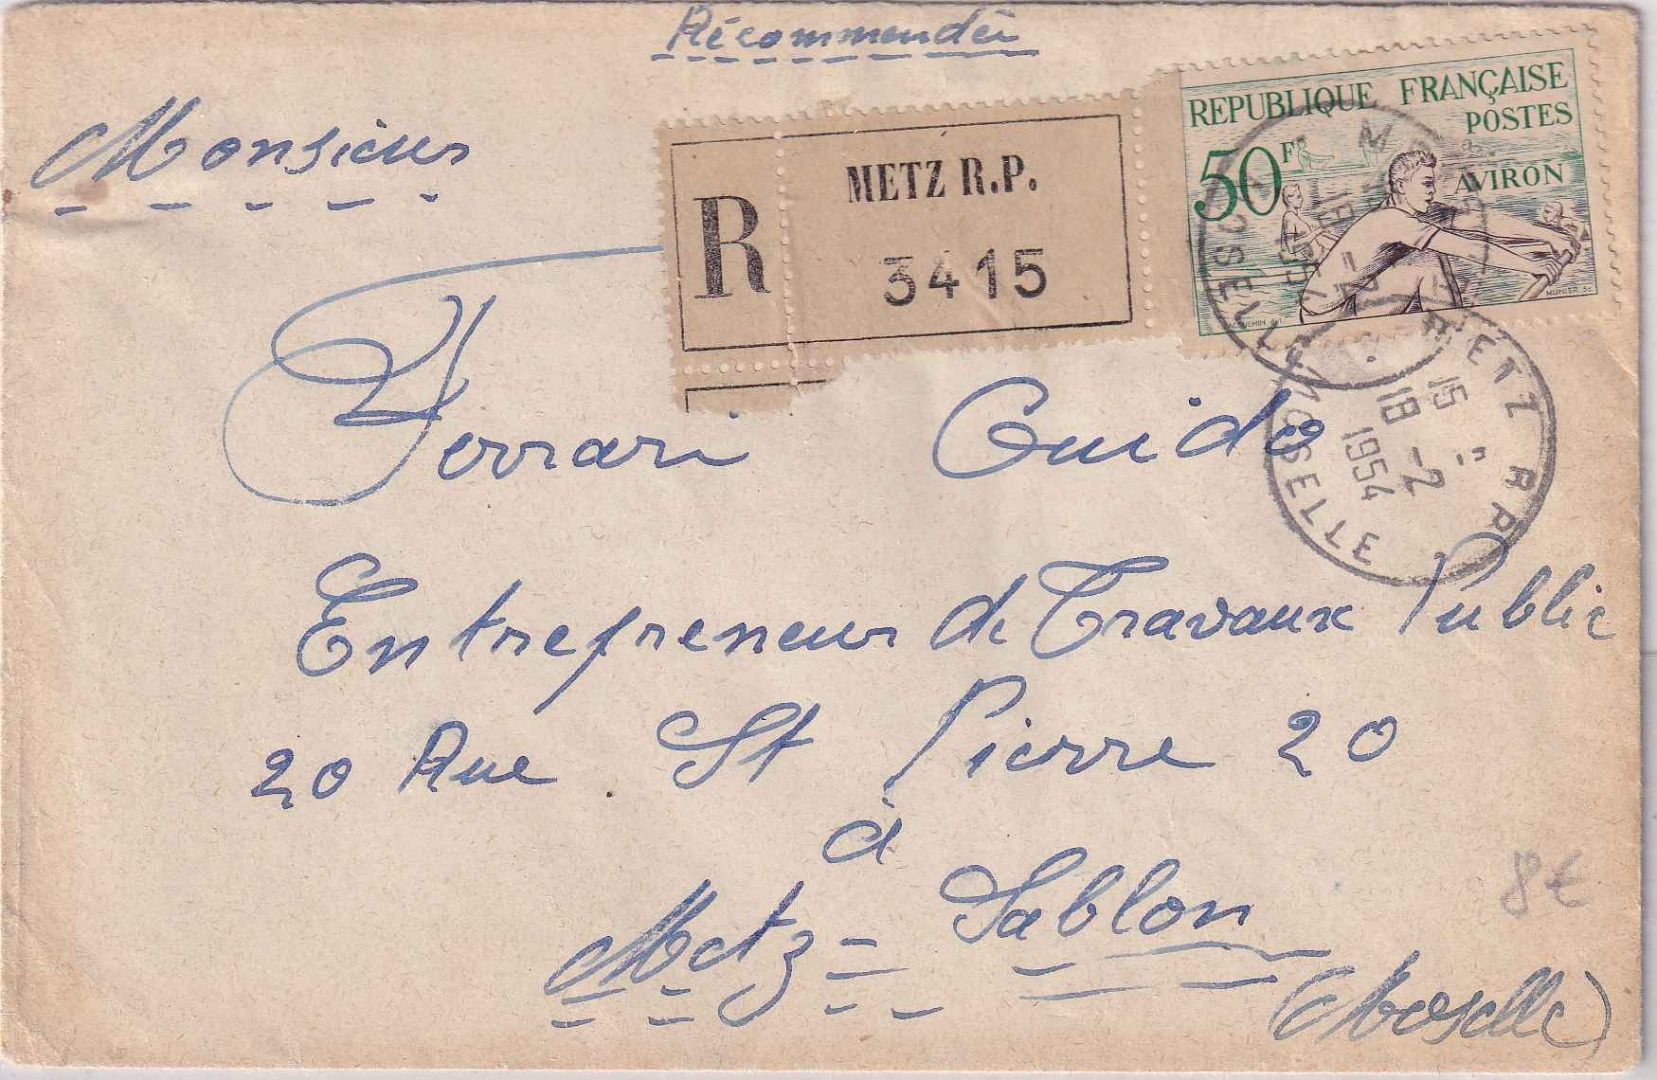 Récommandée
Monsieur
R
METZ R.P.
3415
REPUBLIQUE FRANÇAISE
POSTES
50F
AVIRON
MUNIER SC.
METZ RP
15 H
18 -2
1954
MOSELLE
Ferrari Guido
Entrepreneur de Travaux Public
20 Rue St Pierre 20
à
Metz = Sablon
(Moselle)
8€